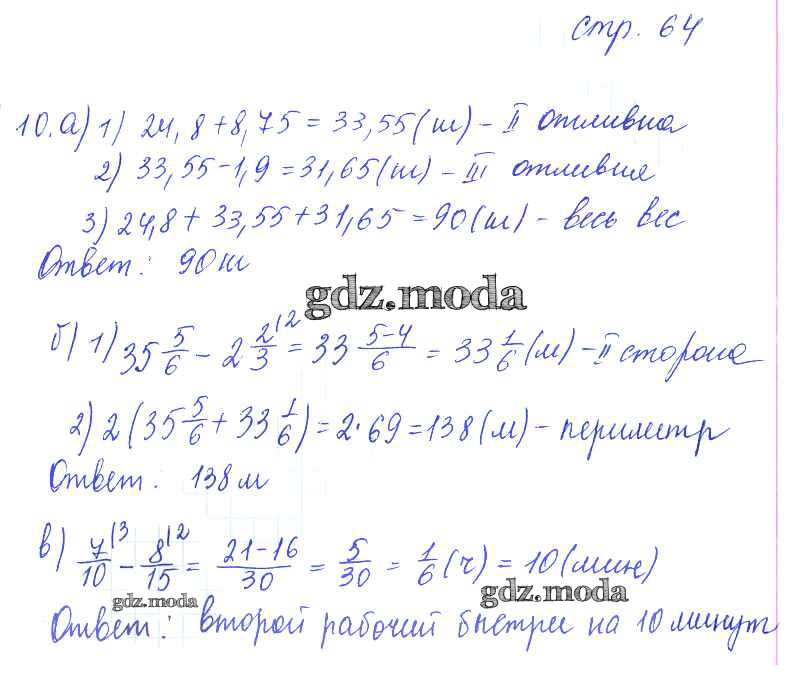 стр. 64
10. а) 1) 24,8 + 8,75 = 33,55 (т) – II отливка
2) 33,55 – 1,9 = 31,65 (т) – III отливка
3) 24,8 + 33,55 + 31,65 = 90 (т) – весь вес
Ответ: 90 т
gdz.moda
б) 1) 35 5/6 – 2 2/3 |2 = 33 5–4/6 = 33 1/6 (м) – II сторона
2) 2 (35 5/6 + 33 1/6) = 2·69 = 138 (м) – периметр
Ответ: 138 м
в) 7/10 |3 – 8/15 |2 = 21–16/30 = 5/30 = 1/6 (ч) = 10 (мин)
gdz.moda gdz.moda
Ответ: второй рабочий быстрее на 10 минут